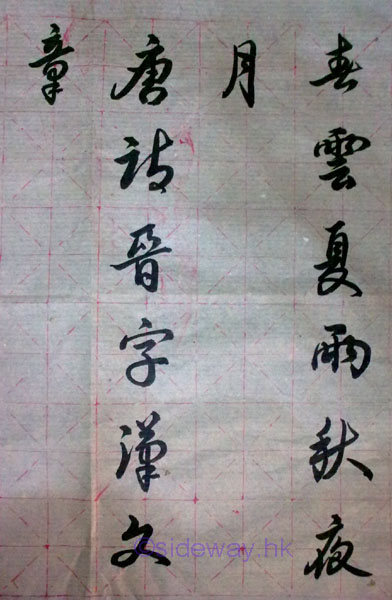 春雲夏雨秋夜
月
唐詩晉字漢文
章
©sideway.hk